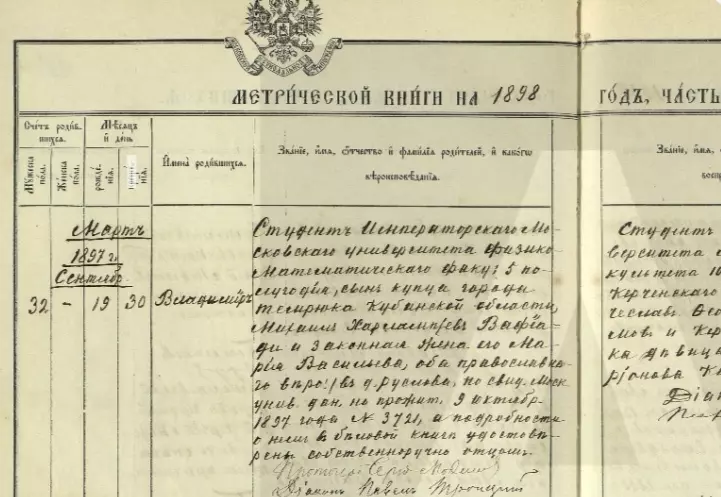 МЕТРИЧЕСКОЙ КНИГИ НА 1898
ГОДЪ, ЧАСТЬ
Счетъ родив-
шихся.
Мужеска пола.
Женска пола.
Мѣсяцъ
и день
рожде-
нія.
Имена родившихся.
Званіе, имя, отчество и фамилія родителей, и какого
вѣроисповѣданія.
Званіе, имя,
воспр
Мартъ
1897 г.
Сентябр.
32 – 19 30 Владиміръ
Студентъ Императорскаго Мо-
сковскаго университета физико
Математическаго факул. 5 по-
лугодія, сынъ купца города
Темрюка Кубанской области,
Михаилъ Харлампіевъ Вафіа-
ди и законная жена его Ма-
рія Васильева, оба православна-
го по свид. Моск
унив. дан. на прожит. 9 октябр
1897 года N 3721, а подробности
о нем в билетовой книге удостовѣ-
рены собственноручно отцомъ.
Протоіерей Сергій
Діаконъ Павелъ Троицкій
Студентъ
верситета
культета
Керченскаго
чеславъ
мовъ и Кер
ка дѣвица
ріонова
Діак